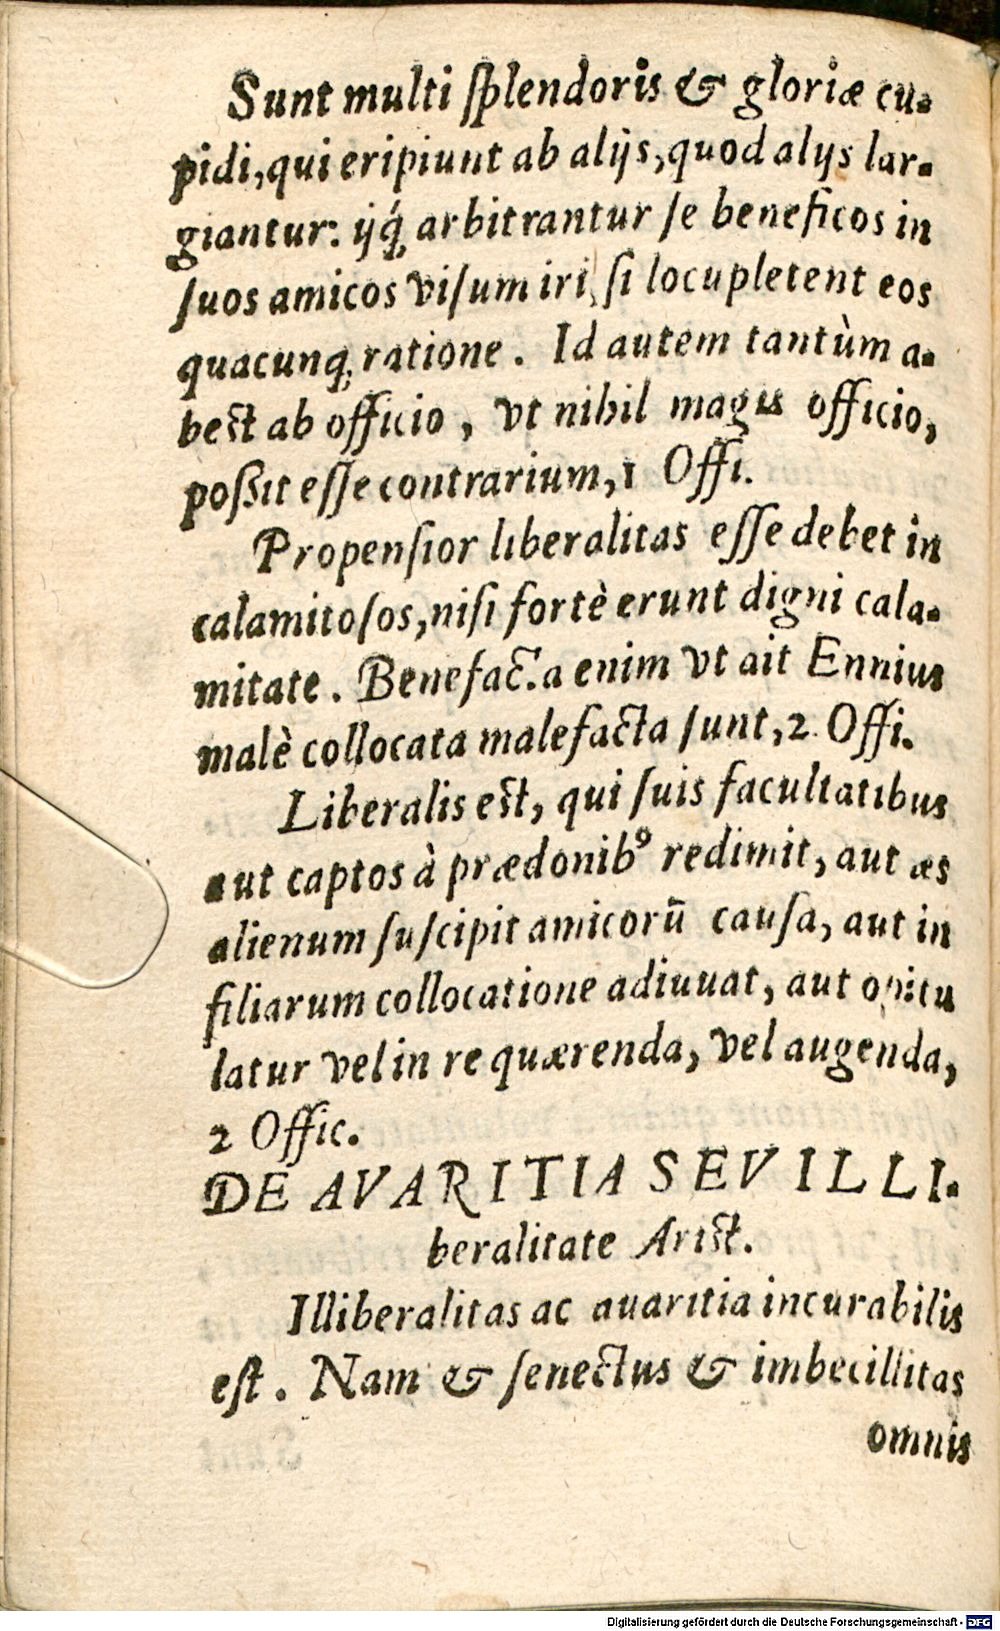 Sunt multi ſplendoris & gloriæ cu-
pidi, qui eripiunt ab alijs, quod alijs lar-
giantur: ijq́; arbitrantur ſe beneficos in
ſuos amicos viſum iri, ſi locupletent eos
quacunq; ratione. Id autem tantùm a-
best ab officio, vt nihil magis officio,
poßit eſſe contrarium, 1 Offi.
Propenſior liberalitas eſſe debet in
calamitoſos, niſi fortè erunt digni cala-
mitate. Benefacta enim vt ait Ennius
malè collocata malefacta ſunt, 2. Offi.
Liberalis est, qui ſuis facultatibus
aut captos à prædonibꝰ redimit, aut æs
alienum ſuſcipit amicorū cauſa, aut in
filiarum collocatione adiuuat, aut opitu
latur vel in re quærenda, vel augenda,
2 Offic.
DE AVARITIA SEV ILLI-
beralitate Arist.
Illiberalitas ac auaritia incurabilis
eſt. Nam & ſenectus & imbecillitas
omnis
Digitalisierung gefördert durch die Deutsche Forschungsgemeinschaft - DFG